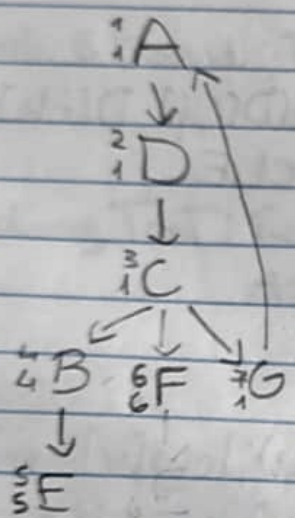 1
1 A
2
1 D
3
1 C
4
4 B 6
6 F 7
1 G
5
5 E